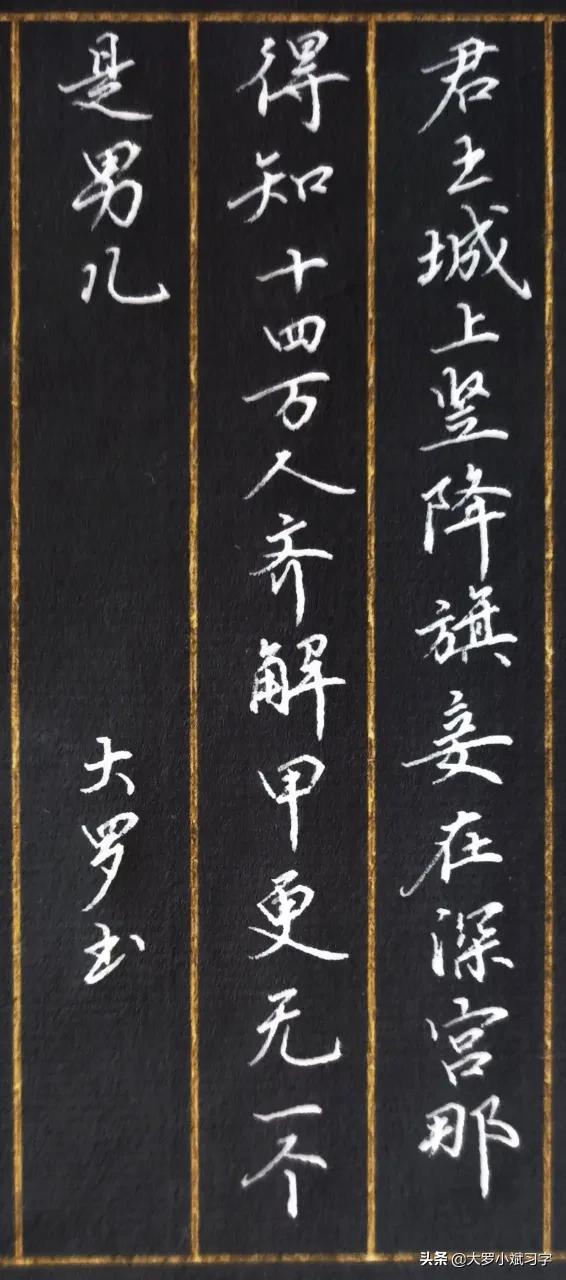 君王城上竖降旗妾在深宫那
得知十四万人齐解甲更无一个
是男儿
大罗书
头条 @大罗小斌习字